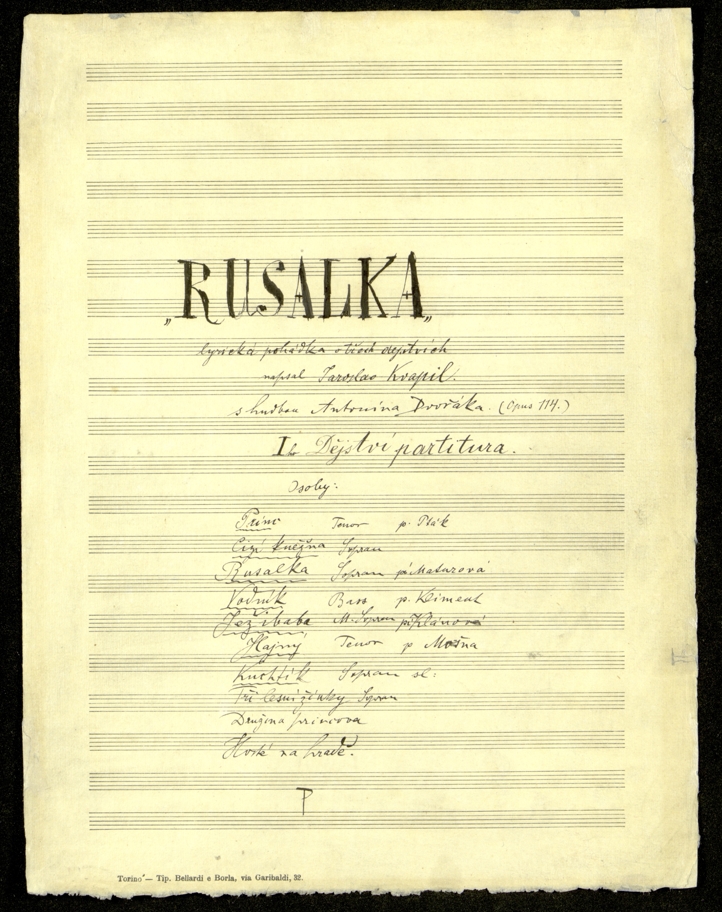 „RUSALKA„
lyrická pohádka o třech dejstvích
napsal Jaroslav Kvapil.
s hudbou Antonína Dvořáka. (Opus 114.)
I. Dějství partitura.
Osoby:
Princ Tenor p. Pták
Cizí kněžna Sopran
Rusalka Sopran pí Maturová
Vodník Bass p. Kliment
Ježibaba M. Sopran Klánová
Hajný Tenor p Mošna
Kuchtík Sopran sl:
Tři lesní žínky Sopran
Družina princova
Hosté na hradě.
P
II
Torino — Tip. Bellardi e Borla, via Garibaldi, 32.